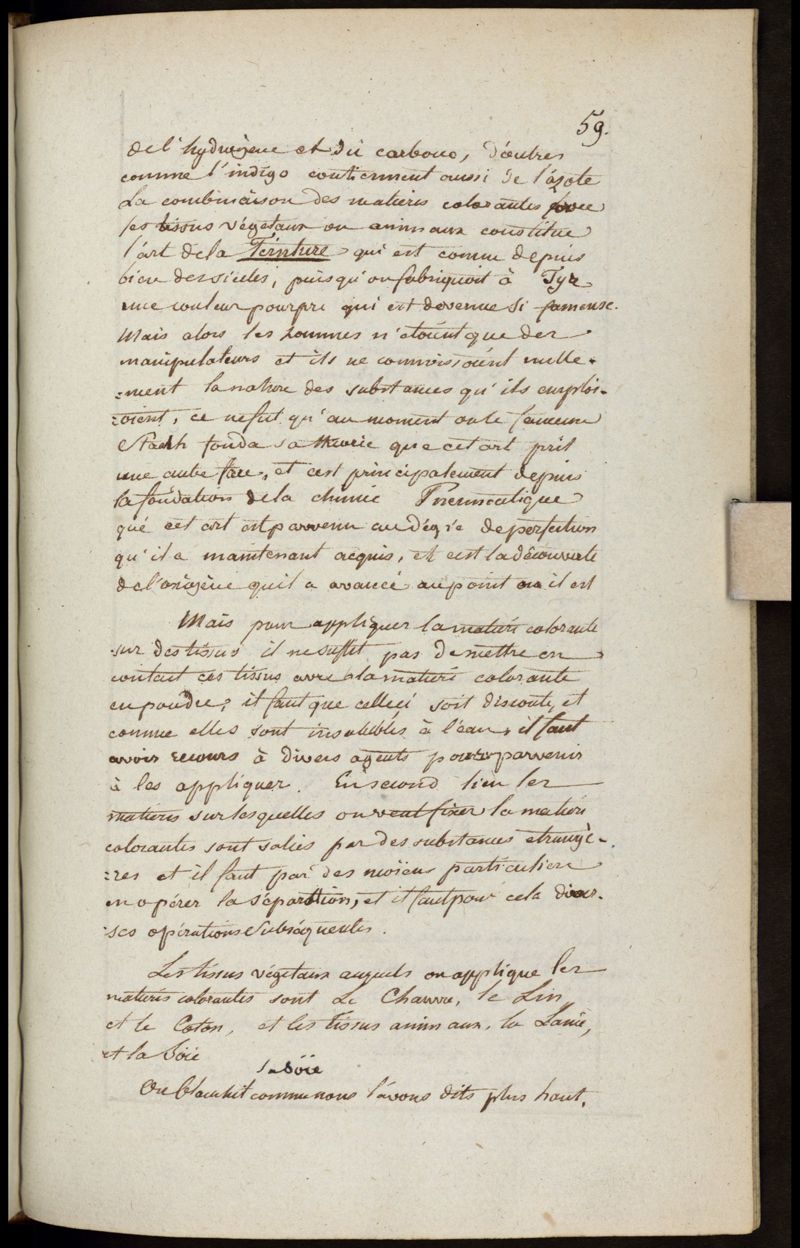 59.
de l'hydrogene et du carbone, d'autres
comme l'indigo contiennent aussi de l'azote
La combinaison des matieres colorantes avec
les tissus végétaux ou animaux constitue
l'art de la Teinture qui est connu depuis
bien des siecles, puisqu'on fabriquoit à Tyr
une couleur pourpre qui est devenue si fameuse.
Mais alors les hommes n'étoient que des
manipulateurs et ils ne connoissoient nulle-
=ment la nature des substances qu'ils emploi-
=oient, ce ne fut qu'au moment ou le fameux
Staalh fonda sa théorie que cet art prit
une autre face, et c'est principalement depuis
la fondation de la chimie Pneumatique
que cet art est parvenu au dégré de perfection
qu'il a maintenant acquis, et c'est la découverte
de l'oxigène qui l'a avancé au point ou il est
Mais pour appliquer la matiere colorante
sur des tissus il ne suffit pas de mettre en
contact ces tissus avec la matiere colorante
en poudre; il faut que celleci soit dissoute, et
comme elles sont insolubles à l'eau, il faut
avoir recours à divers agents pour parvenir
à les appliquer. En second lieu les
matieres sur lesquelles on veut fixer la matiere
colorantes sont salies par des substances etrangè-
=res et il faut par des moiens particuliers
en opérer la séparation, et il faut pour cela diver-
=ses opérations Subséquentes.
Les tissus végétaux auquels on applique les
matieres colorantes sont Le Chanvre, le Lin
et le Coton, et les tissus animaux, la Laine,
et la Soie
la Soïe
On blanchit comme nous l'avons dits plus haut,